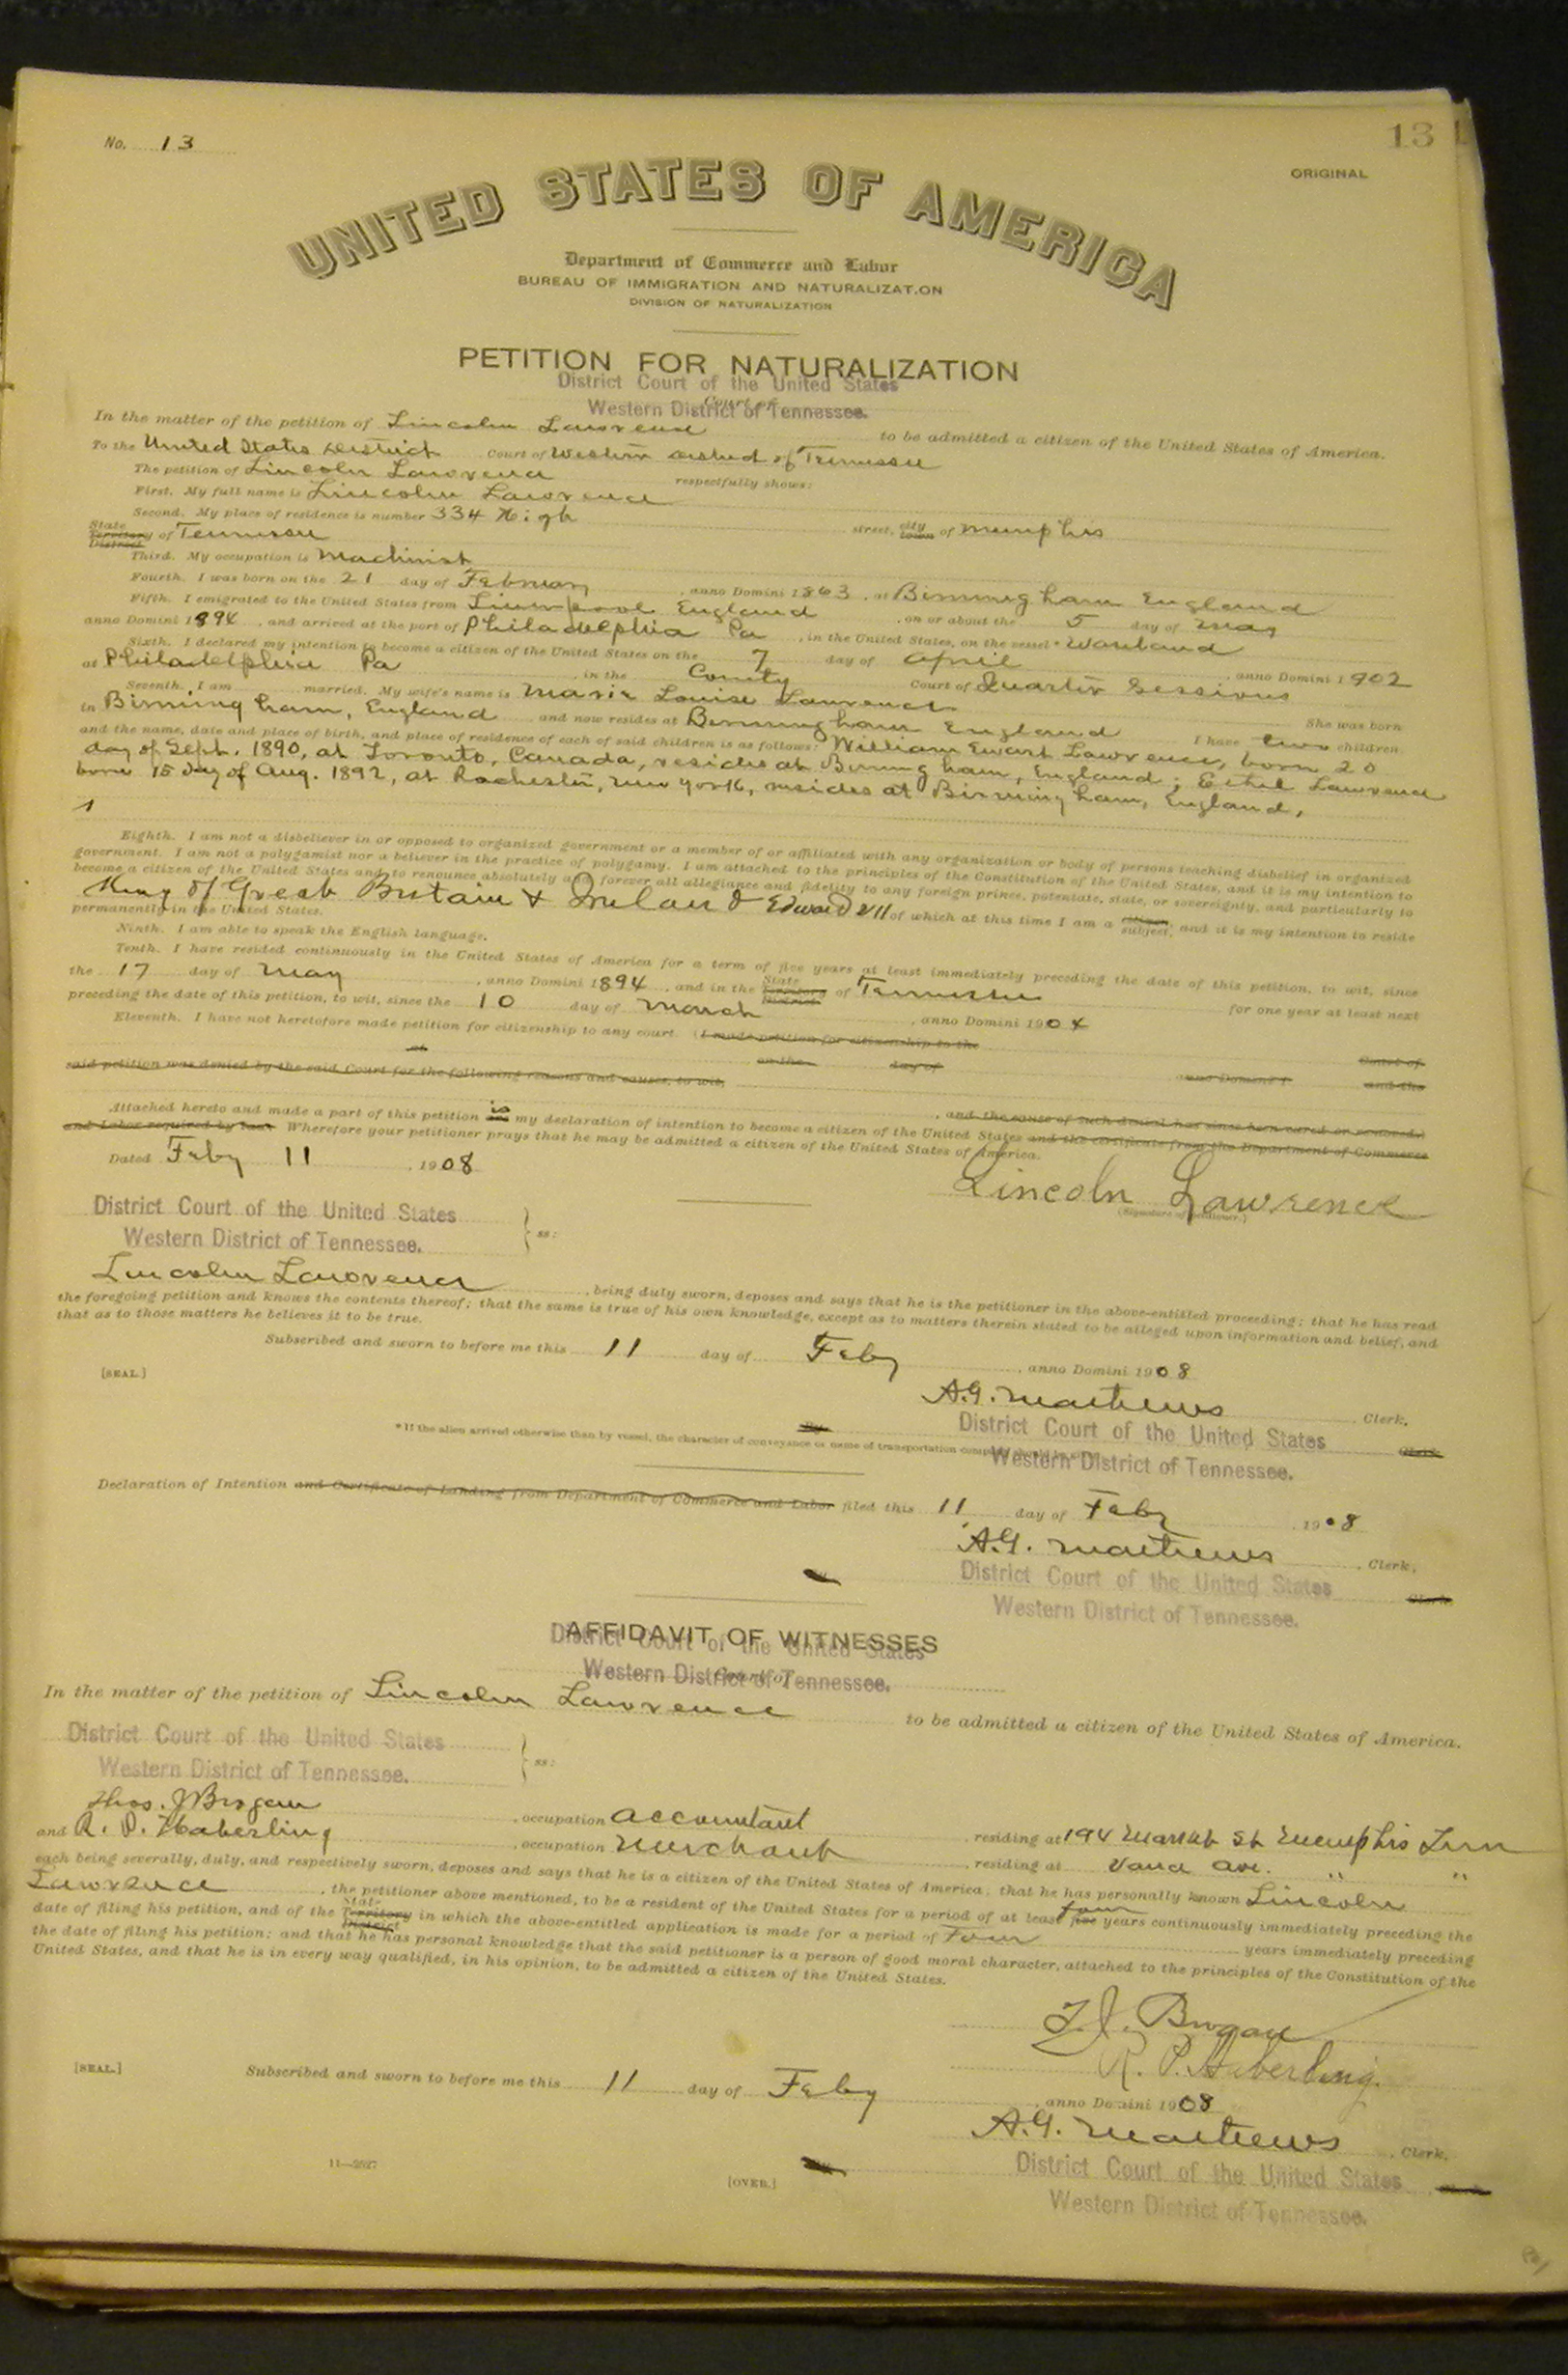 No. 13
13
ORIGINAL
UNITED STATES OF AMERICA
Department of Commerce and Labor
BUREAU OF IMMIGRATION AND NATURALIZATION
DIVISION OF NATURALIZATION
PETITION FOR NATURALIZATION
District Court of the United States
Court of
Western District of Tennessee.
In the matter of the petition of Lincoln Lawrence to be admitted a citizen of the United States of America.
To the United States District Court of Western District of Tennessee
The petition of Lincoln Lawrence respectfully shows:
First. My full name is Lincoln Lawrence
Second. My place of residence is number 334 High street, city town of Memphis
State Territory District of Tennessee
Third. My occupation is Machinist
Fourth. I was born on the 21 day of February, anno Domini 1863, at Birmingham England
Fifth. I emigrated to the United States from Liverpool England, on or about the 5 day of May
anno Domini 1894, and arrived at the port of Philadelphia Pa, in the United States, on the vessel *
Sixth. I declared my intention to become a citizen of the United States on the 7 day of April, anno Domini 1902
at Philadelphia Pa, in the County Court of Quarter Sessions
Seventh. I am married. My wife's name is Marie Louise Lawrence She was born
in Birmingham, England and now resides at Birmingham England I have two children
and the name, date and place of birth, and place of residence of each of said children is as follows: William Ewart Lawrence, born 20
day of Sept. 1890, at Toronto, Canada, resides at Birmingham, England; Ethel Lawrence
born 15 day of Aug. 1892, at Rochester, New York, resides at Birmingham, England,
Eighth. I am not a disbeliever in or opposed to organized government or a member of or affiliated with any organization or body of persons teaching disbelief in organized
government. I am not a polygamist nor a believer in the practice of polygamy. I am attached to the principles of the Constitution of the United States, and it is my intention to
become a citizen of the United States and to renounce absolutely and forever all allegiance and fidelity to any foreign prince, potentate, state, or sovereignty, and particularly to
King of Great Britain & Ireland Edward VII of which at this time I am a citizen subject, and it is my intention to reside
permanently in the United States.
Ninth. I am able to speak the English language.
Tenth. I have resided continuously in the United States of America for a term of five years at least immediately preceding the date of this petition, to wit, since
the 17 day of May, anno Domini 1894, and in the State Territory District of Tennessee for one year at least next
preceding the date of this petition, to wit, since the 10 day of March, anno Domini 1904
Eleventh. I have not heretofore made petition for citizenship to any court. (I made petition for citizenship to the Court of
at on the day of anno Domini 1 and the
said petition was denied by the said Court for the following reasons and causes, to wit,
, and the cause of such denial has since been cured or removed.)
Attached hereto and made a part of this petition is are my declaration of intention to become a citizen of the United States and the certificate from the Department of Commerce
and Labor required by law. Wherefore your petitioner prays that he may be admitted a citizen of the United States of America.
Dated Feby 11, 1908
Lincoln Lawrence
(Signature of petitioner.)
District Court of the United States
Western District of Tennessee.
} ss:
Lincoln Lawrence, being duly sworn, deposes and says that he is the petitioner in the above-entitled proceeding; that he has read
the foregoing petition and knows the contents thereof; that the same is true of his own knowledge, except as to matters therein stated to be alleged upon information and belief, and
that as to those matters he believes it to be true.
Subscribed and sworn to before me this 11 day of Feby, anno Domini 1908
[SEAL.]
A.G. Matthews, Clerk.
By Clerk.
District Court of the United States
Western District of Tennessee.
*If the alien arrived otherwise than by vessel, the character of conveyance or name of transportation company should be given.
Declaration of Intention and Certificate of Landing from Department of Commerce and Labor filed this 11 day of Feby, 1908
A.G. Matthews, Clerk.
District Court of the United States
Western District of Tennessee.
Clerk.
AFFIDAVIT OF WITNESSES
District Court of the United States
Court of
Western District of Tennessee.
In the matter of the petition of Lincoln Lawrence to be admitted a citizen of the United States of America.
District Court of the United States
Western District of Tennessee.
} ss:
Thos. J Brogan, occupation accountant, residing at 194 Market St Memphis Tenn
and R. P. Haberling, occupation Merchant, residing at Vance Ave. " "
each being severally, duly, and respectively sworn, deposes and says that he is a citizen of the United States of America; that he has personally known Lincoln
Lawrence, the petitioner above mentioned, to be a resident of the United States for a period of at least four five years continuously immediately preceding the
date of filing his petition, and of the State Territory District in which the above-entitled application is made for a period of Four years immediately preceding
the date of filing his petition; and that he has personal knowledge that the said petitioner is a person of good moral character, attached to the principles of the Constitution of the
United States, and that he is in every way qualified, in his opinion, to be admitted a citizen of the United States.
T.J. Brogan
R. P. Haberling.
[SEAL.] Subscribed and sworn to before me this 11 day of Feby, anno Domini 1908
A.G. Matthews, Clerk.
District Court of the United States
Western District of Tennessee.
11—2627
[OVER.]